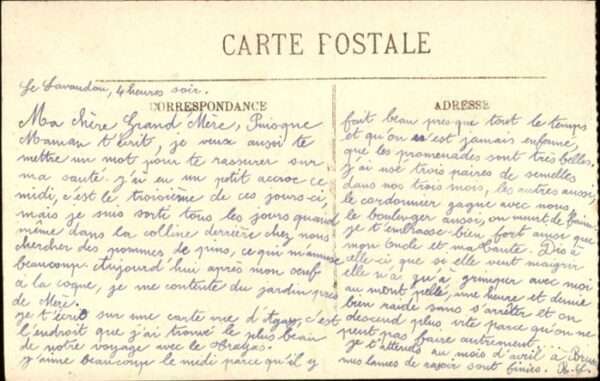 CARTE POSTALE
Le Lavandou, 4 heures soir.
CORRESPONDANCE
Ma chère Grand'Mère, Puisque
Maman t'écrit, je veux aussi te
mettre un mot pour te rassurer sur
ma santé. j'ai eu un petit accroc ce
midi, c'est le troisième de ces jours-ci,
mais je suis sorti tous les jours quand
même dans la colline derrière chez nous
chercher des pommes de pins, ce qui m'amuse
beaucoup. Aujourd'hui après mon oeuf
à la coque, je me contente du jardin près
de Mère.
je t'écris sur une carte vue d'Agay, c'est
l'endroit que j'ai trouvé le plus beau
de notre voyage avec le
j'aime beaucoup le midi parce qu'il y
ADRESSE
fait beau presque tout le temps
et qu'on n'est jamais enfermé,
que les promenades sont très belles.
j'ai usé trois paires de semelles
dans nos trois mois, les autres aussi,
le cordonnier gagne avec nous,
le boulanger aussi, on meurt de faim.
je t'embrasse bien fort ainsi que
mon oncle et ma tante. Dis à
elle-ci que si elle veut maigrir
elle n'a qu'à grimper avec moi
au mont pellé, une heure et demie
bien raide sans s'arrêter et on
descend plus vite parce qu'on ne
peut pas faire autrement.
je t'attends au mois d'avril à
mes lames de rasoir sont finies.